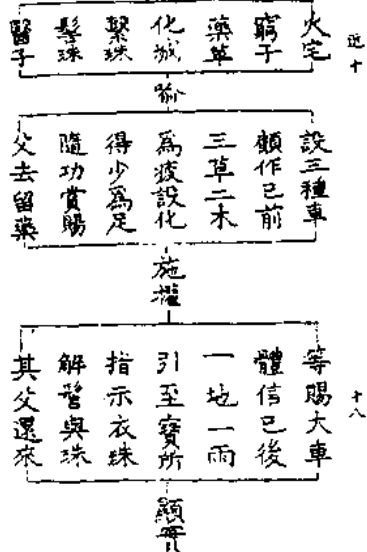 近十
火宅
窮子
藥草
化城
繫珠
髻珠
醫子
喻
設三種車
顧作已前
三草二木
為疲設化
得少為足
隨功賞賜
父去留藥
施權
十八
等賜大車
體信已後
一地一雨
引至寶所
指示衣珠
解髻與珠
其父還來
顯實